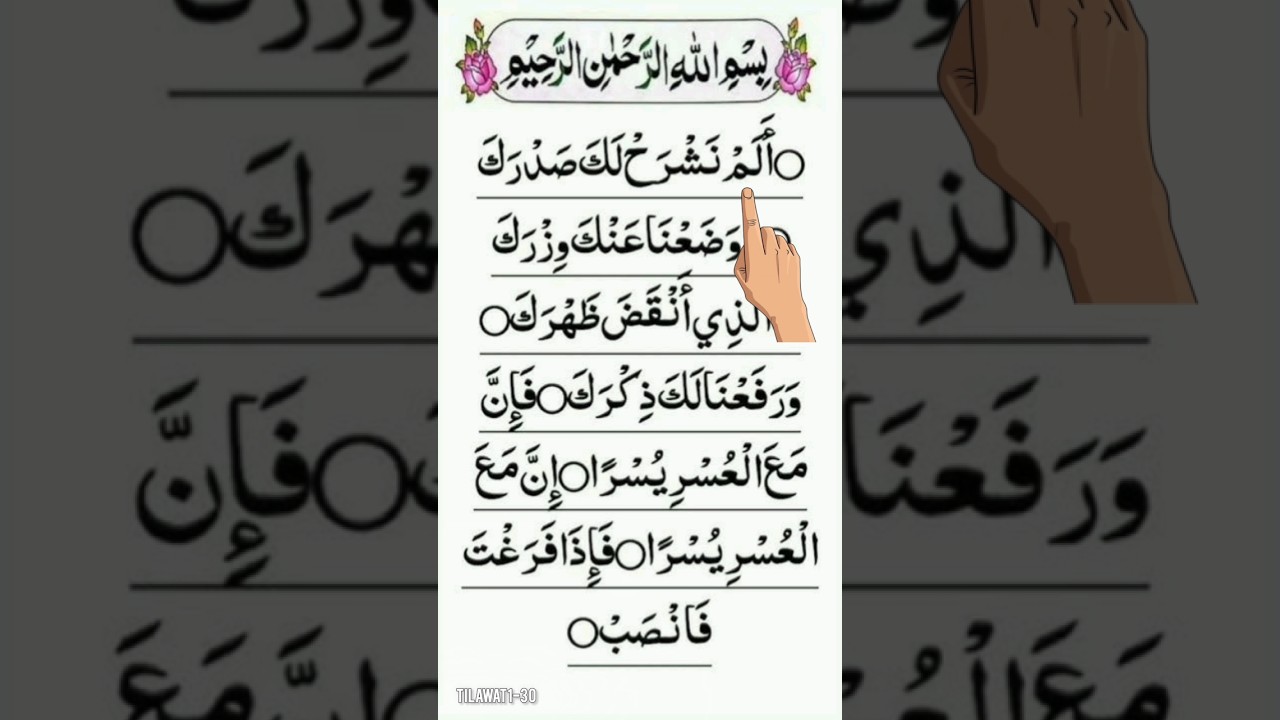 بِسْمِ اللهِ الرَّحْمٰنِ الرَّحِيْمِ
○أَلَمْ نَشْرَحْ لَكَ صَدْرَكَ
وَضَعْنَا عَنْكَ وِزْرَكَ
الَّذِي أَنْقَضَ ظَهْرَكَ○
وَرَفَعْنَا لَكَ ذِكْرَكَ○فَإِنَّ
مَعَ الْعُسْرِ يُسْرًا○إِنَّ مَعَ
الْعُسْرِ يُسْرًا○فَإِذَا فَرَغْتَ
فَانْصَبْ○
TILAWAT1-30